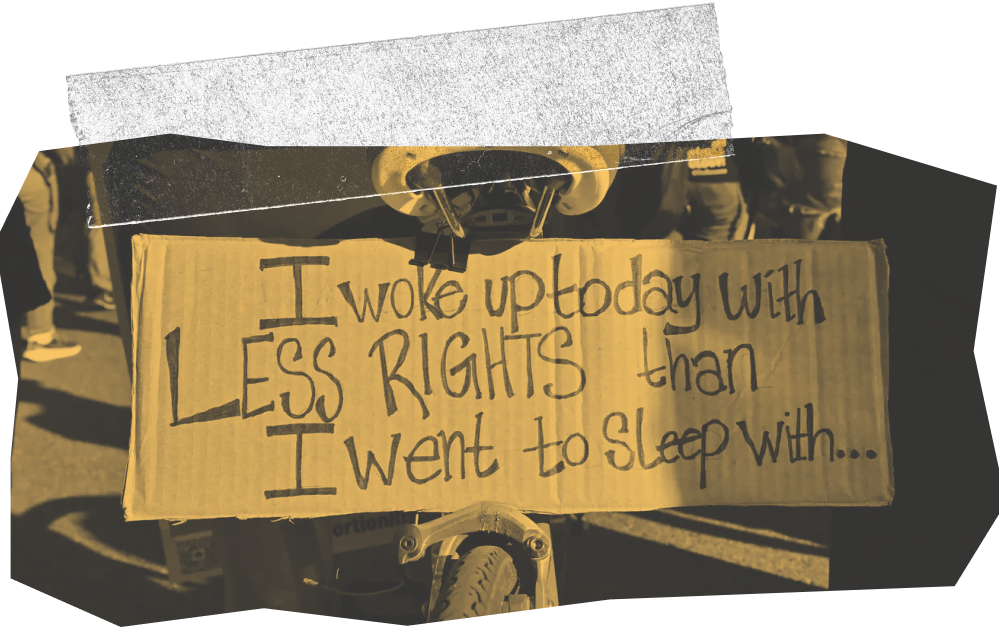 I woke up today with
LESS RIGHTS than
I went to sleep with...